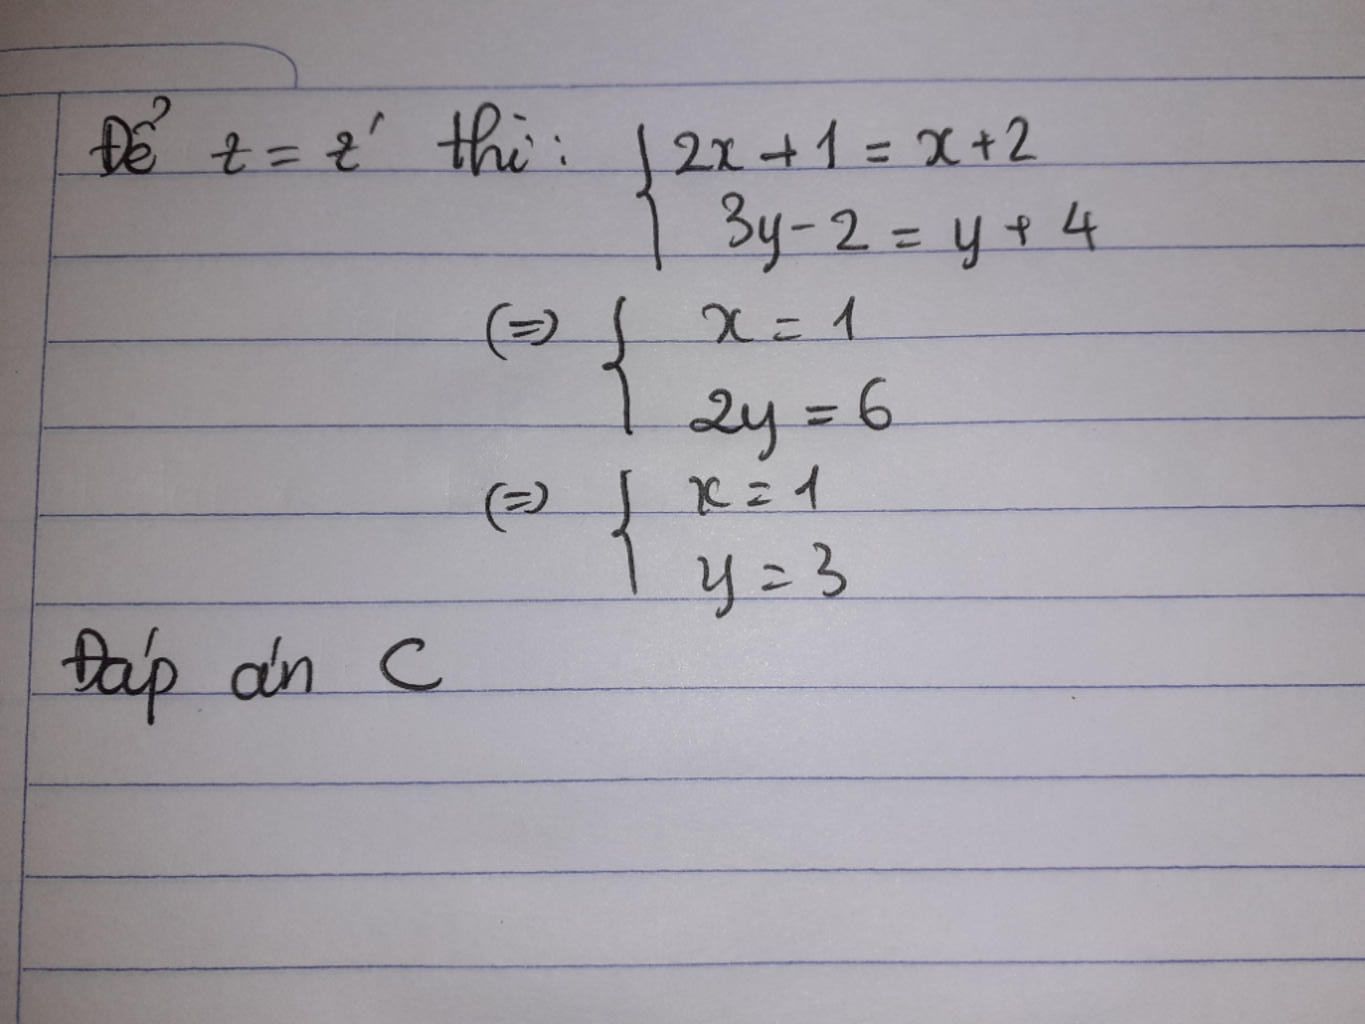 Để z = z' thì: { 2x + 1 = x + 2
3y - 2 = y + 4
(=) { x = 1
2y = 6
(=) { x = 1
y = 3
Đáp án C